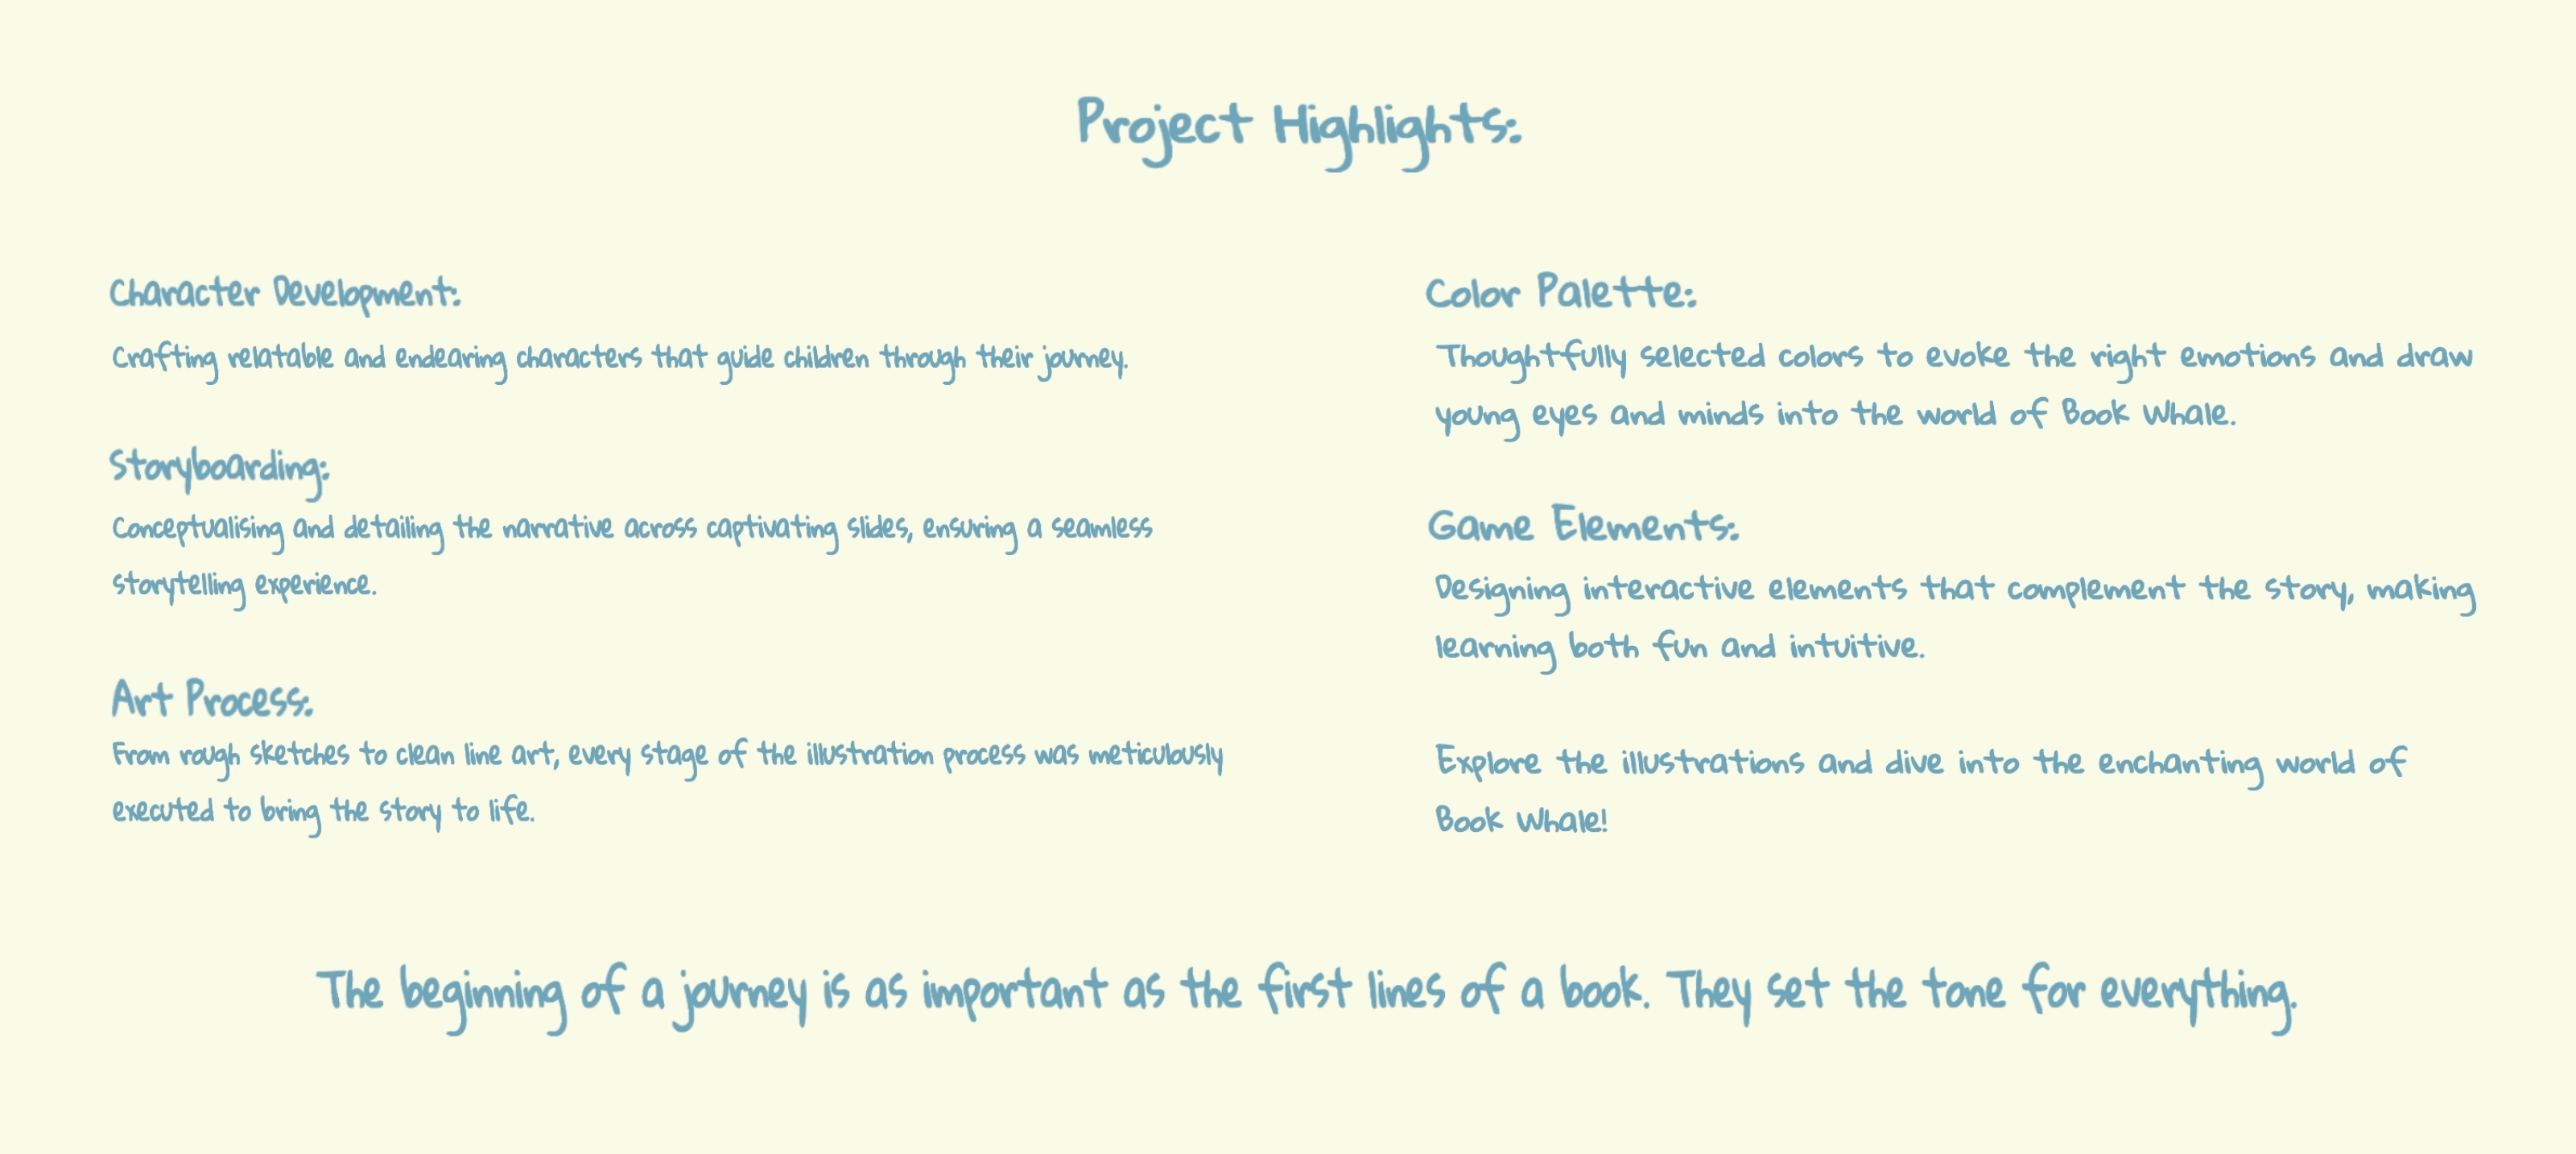 Project Highlights:
Character Development:
Crafting relatable and endearing characters that guide children through their journey.
Storyboarding:
Conceptualising and detailing the narrative across captivating slides, ensuring a seamless
storytelling experience.
Art Process:
From rough sketches to clean line art, every stage of the illustration process was meticulously
executed to bring the story to life.
Color Palette:
Thoughtfully selected colors to evoke the right emotions and draw
young eyes and minds into the world of Book Whale.
Game Elements:
Designing interactive elements that complement the story, making
learning both fun and intuitive.
Explore the illustrations and dive into the enchanting world of
Book Whale!
The beginning of a journey is as important as the first lines of a book. They set the tone for everything.